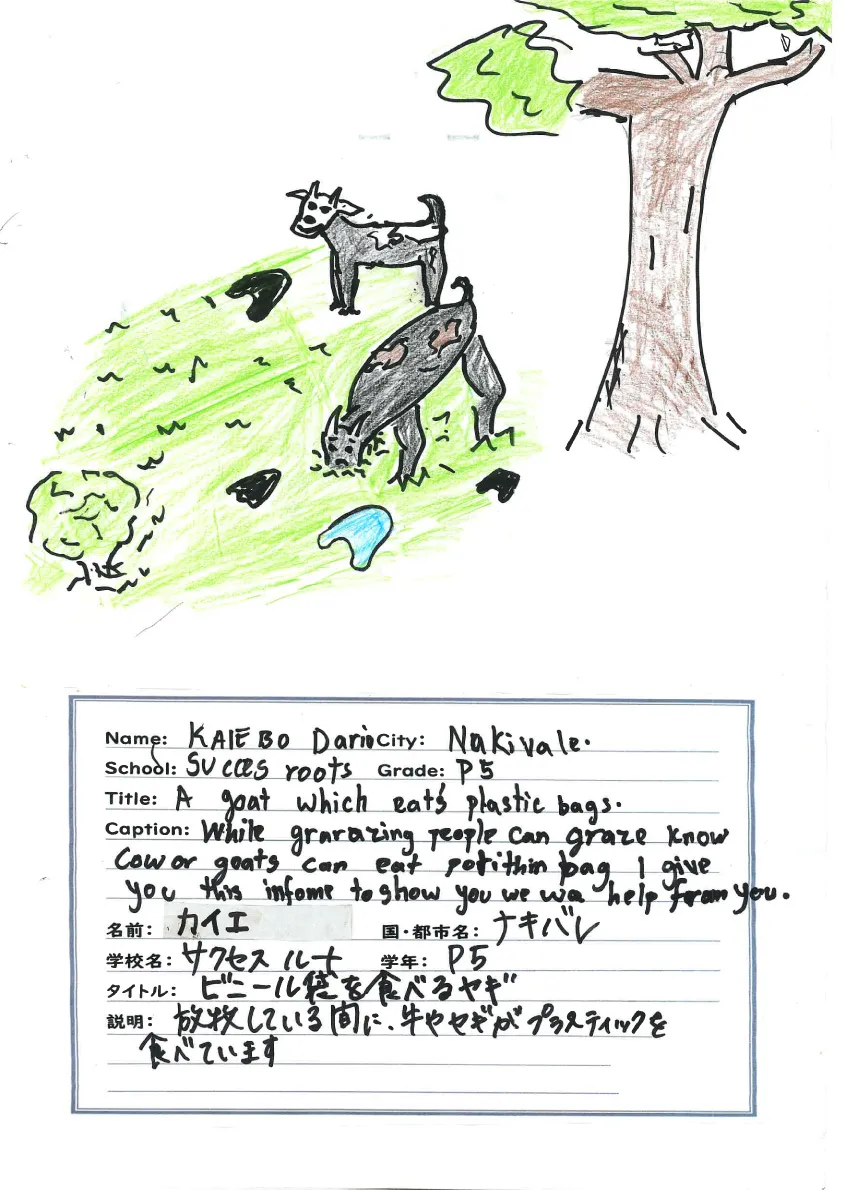 Name: KAIEBO Dario City: Nakivale.
School: SUCCES roots Grade: P5
Title: A goat which eats plastic bags.
Caption: While grarazing people can graze know
Cow or goats can eat porithin bag I give
you this infome to show you we wa help from you.
名前: カイエ 国・都市名: ナキバレ
学校名: サクセス ルーツ 学年: P5
タイトル: ビニール袋を食べるヤギ
説明: 放牧している間に、牛やヤギがプラスティックを
食べています